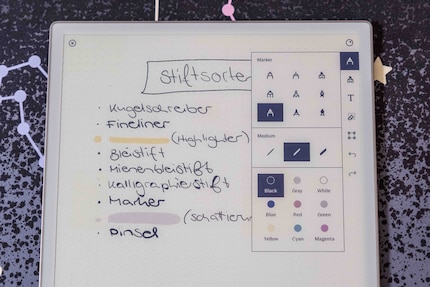 Stiftsorte
· Kugelschreiber
· Fineliner
(Highlighter)
· Bleistift
· Minenbleistift
· Kalligraphiestift
· Marker
(Schattier
· Pinsel
Marker
Medium
Black Gray White
Blue Red Green
Yellow Cyan Magenta
T